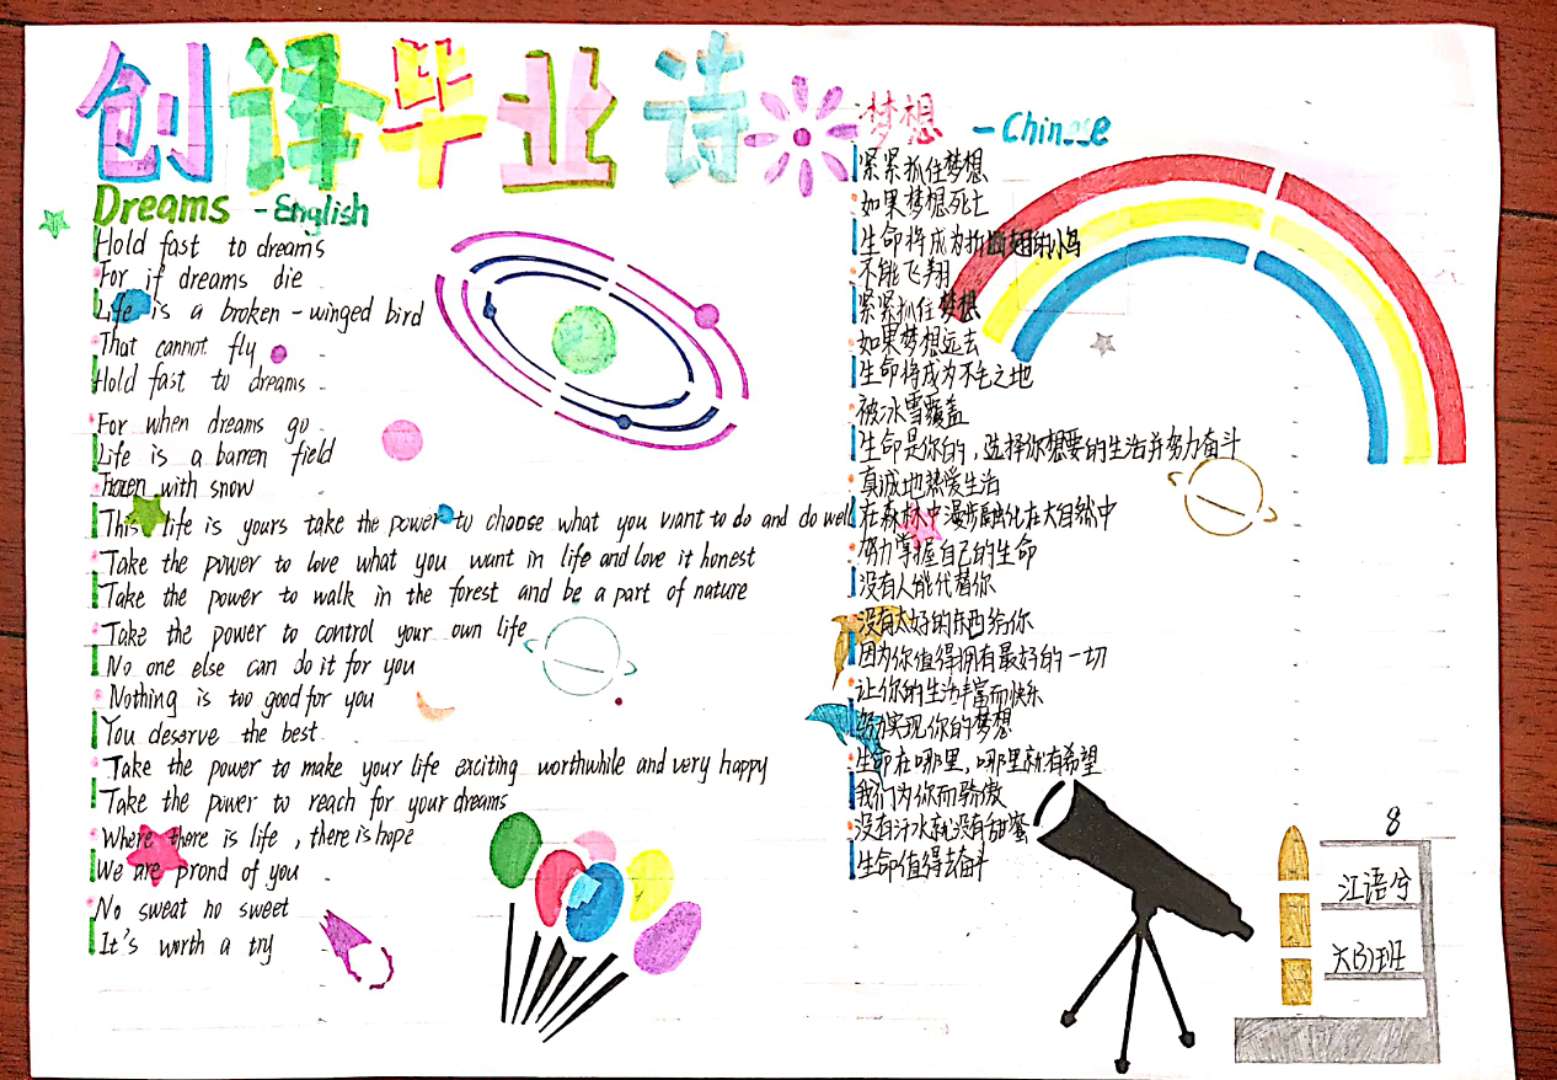 创译毕业诗
Dreams - English
Hold fast to dreams
For if dreams die
Life is a broken-winged bird
That cannot fly
Hold fast to dreams
For when dreams go
Life is a barren field
Frozen with snow
This life is yours take the power to choose what you want to do and do well
Take the power to love what you want in life and love it honest
Take the power to walk in the forest and be a part of nature
Take the power to control your own life
No one else can do it for you
Nothing is too good for you
You deserve the best
Take the power to make your life exciting worthwhile and very happy
Take the power to reach for your dreams
Where there is life, there is hope
We are prond of you
No sweat no sweet
It's worth a try
梦想 - Chinese
紧紧抓住梦想
如果梦想死亡
生命将成为折断翅的小鸟
不能飞翔
紧紧抓住梦想
如果梦想远去
生命将成为不毛之地
被冰雪覆盖
生命是你的,选择你想要的生活并努力奋斗
真诚地热爱生活
在森林中漫步融化在大自然中
努力掌握自己的生命
没有人能代替你
没有太好的东西给你
因为你值得拥有最好的一切
让你的生活丰富而快乐
努力实现你的梦想
生命在哪里,哪里就有希望
我们为你而骄傲
没有汗水就没有甜蜜
生命值得去奋斗
8
江语兮
六(3)班